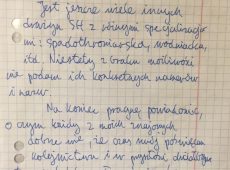 Jest jeszcze wiele innych
drużyn SH z różnymi specjalizacja-
mi: spadochroniarska, wodniacka,
itd. Niestety z braku możliwości
nie podam ich konkretnych numerów
i nazw.
Na koniec pragnę powiadomić,
o czym każdy z moich znajomych
dobrze wie, że czas mój poświęcam
kolejnictwu i w